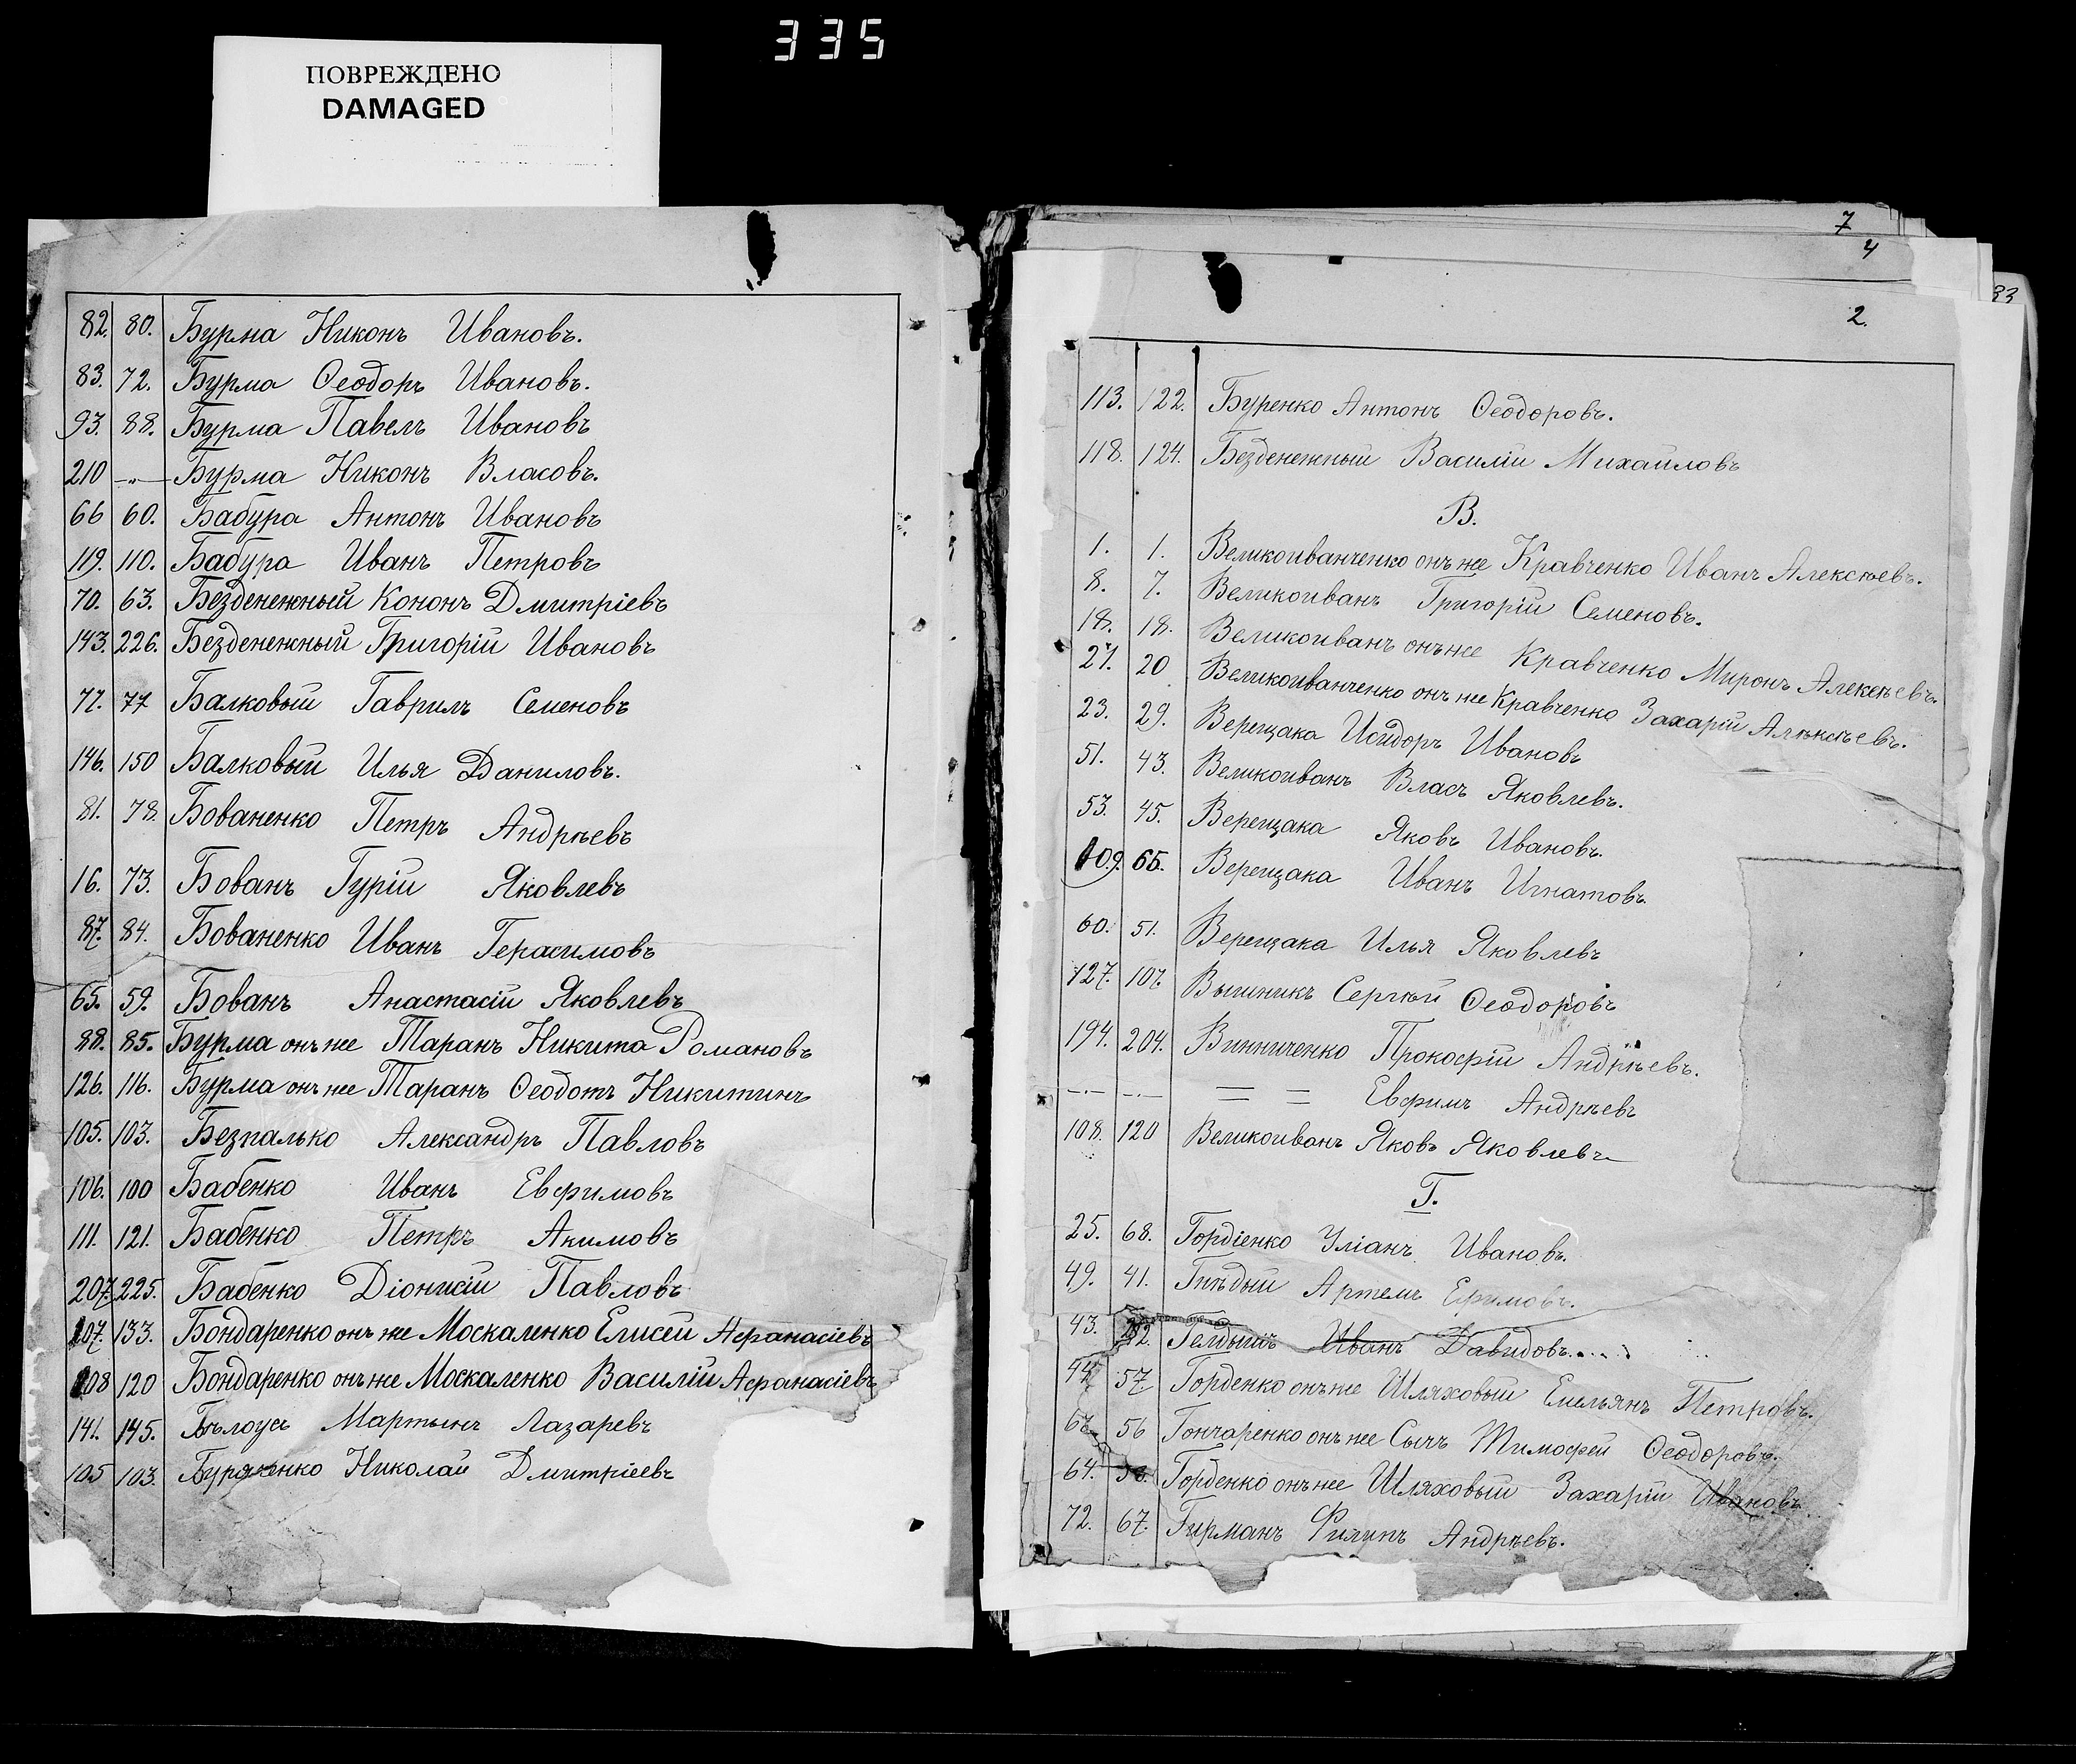 335
ПОВРЕЖДЕНО
DAMAGED
82. 80. Бурма Никонъ Ивановъ.
83. 72. Бурма Ѳеодоръ Ивановъ.
93. 88. Бурма Павелъ Ивановъ
210 —"— Бурма Никонъ Власовъ.
66 60. Бабура Антонъ Ивановъ
119. 110. Бабура Иванъ Петровъ
70. 63. Безденежный Кононъ Дмитріевъ
143. 226. Безденежный Григорій Ивановъ
77. 77 Балковый Гаврилъ Семеновъ
146. 150 Балковый Илья Даниловъ.
81. 78. Бованенко Петръ Андрѣевъ
16. 73. Бованъ Гурій Яковлевъ
87. 84. Бованенко Иванъ Герасимовъ
65. 59. Бованъ Анастасій Яковлевъ
88. 85. Бурма онъ же Таранъ Никита Романовъ
126. 116. Бурма онъ же Таранъ Ѳеодотъ Никитинъ
105. 103. Безпалько Александръ Павловъ
106. 100 Бабенко Иванъ Евфимовъ
111. 121. Бабенко Петръ Акимовъ
207. 225. Бабенко Діонисій Павловъ
107. 133. Бондаренко онъ же Москаленко Елисей Афанасіевъ
108 120 Бондаренко онъ же Москаленко Василій Афанасіевъ
141. 145. Бѣлоусъ Мартынъ Лазаревъ
105 103. Буряченко Николай Дмитріевъ
7
4
33
2.
113. 122. Буренко Антонъ Ѳеодоровъ.
118. 124. Безденежный Василій Михайловъ
В.
1. 1. Великоиванченко онъ же Кравченко Иванъ Алексѣевъ.
8. 7. Великоиванъ Григорій Семеновъ.
18. 18. Великоиванъ онъ же Кравченко Миронъ Алексѣевъ.
27. 20 Великоиванченко онъ же Кравченко Захарій Алексѣевъ.
23. 29. Верещака Исидоръ Ивановъ
51. 43. Великоиванъ Власъ Яковлевъ.
53. 45. Верещака Яковъ Ивановъ.
109. 65. Верещака Иванъ Игнатовъ
60. 51. Верещака Илья Яковлевъ
127. 107. Сергѣй Ѳеодоровъ
194. 204. Винниченко Прокофій Андрѣевъ.
—"— —"— = = Евфимъ Андрѣевъ
108. 120 Великоиванъ Яковъ Яковлевъ
Г.
25. 68. Гордіенко Уліанъ Ивановъ.
49. 41. Гнѣдый Артемъ Ефимовъ.
43. Иванъ Давидовъ
44. 57. Горденко онъ же Шляховый Емельянъ Петровъ.
56 Гончаренко онъ же Сычъ Тимофей Ѳеодоровъ.
64. Горденко онъ же Шляховый Захарій Ивановъ
72. 67. Гирманъ Филипъ Андрѣевъ.